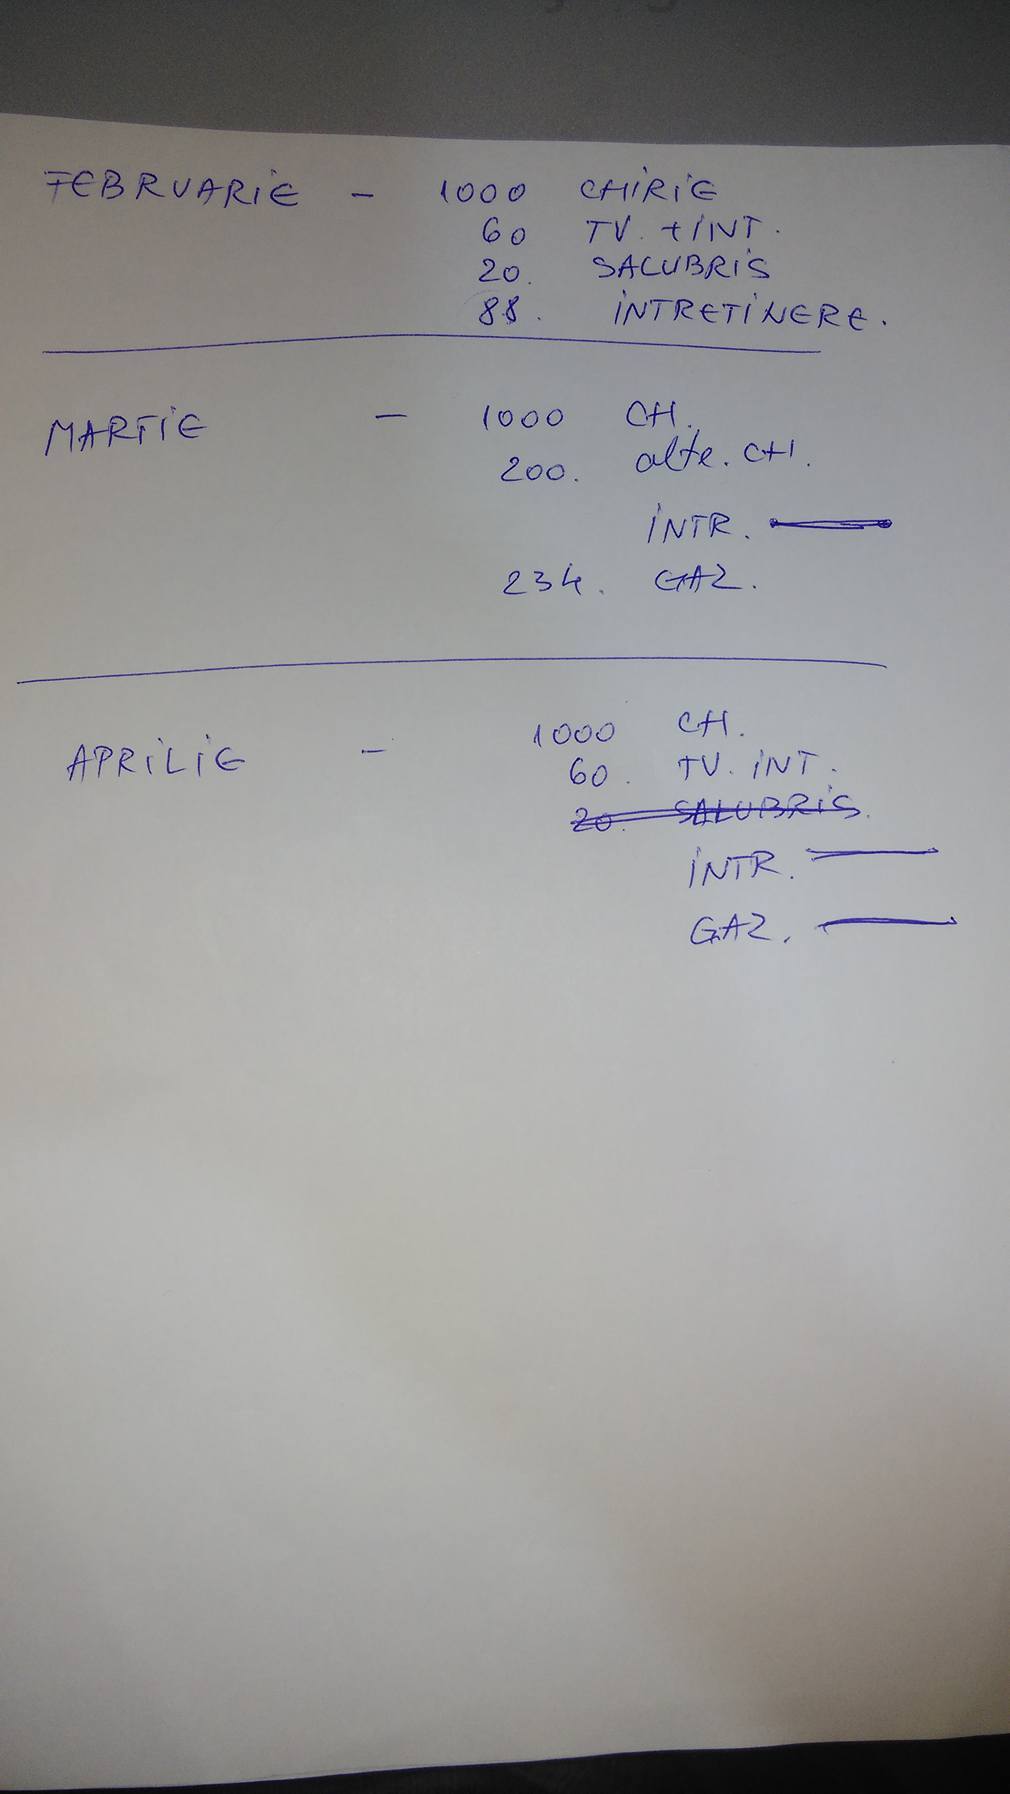 FEBRUARIE - 1000 CHIRIE
60 TV. + INT.
20. SALUBRIS
88. INTRETINERE.
MARTIE - 1000 CH.
200. alte. CH.
INTR.
234. GAZ.
APRILIE - 1000 CH.
60. TV. INT.
20. SALUBRIS.
INTR.
GAZ.